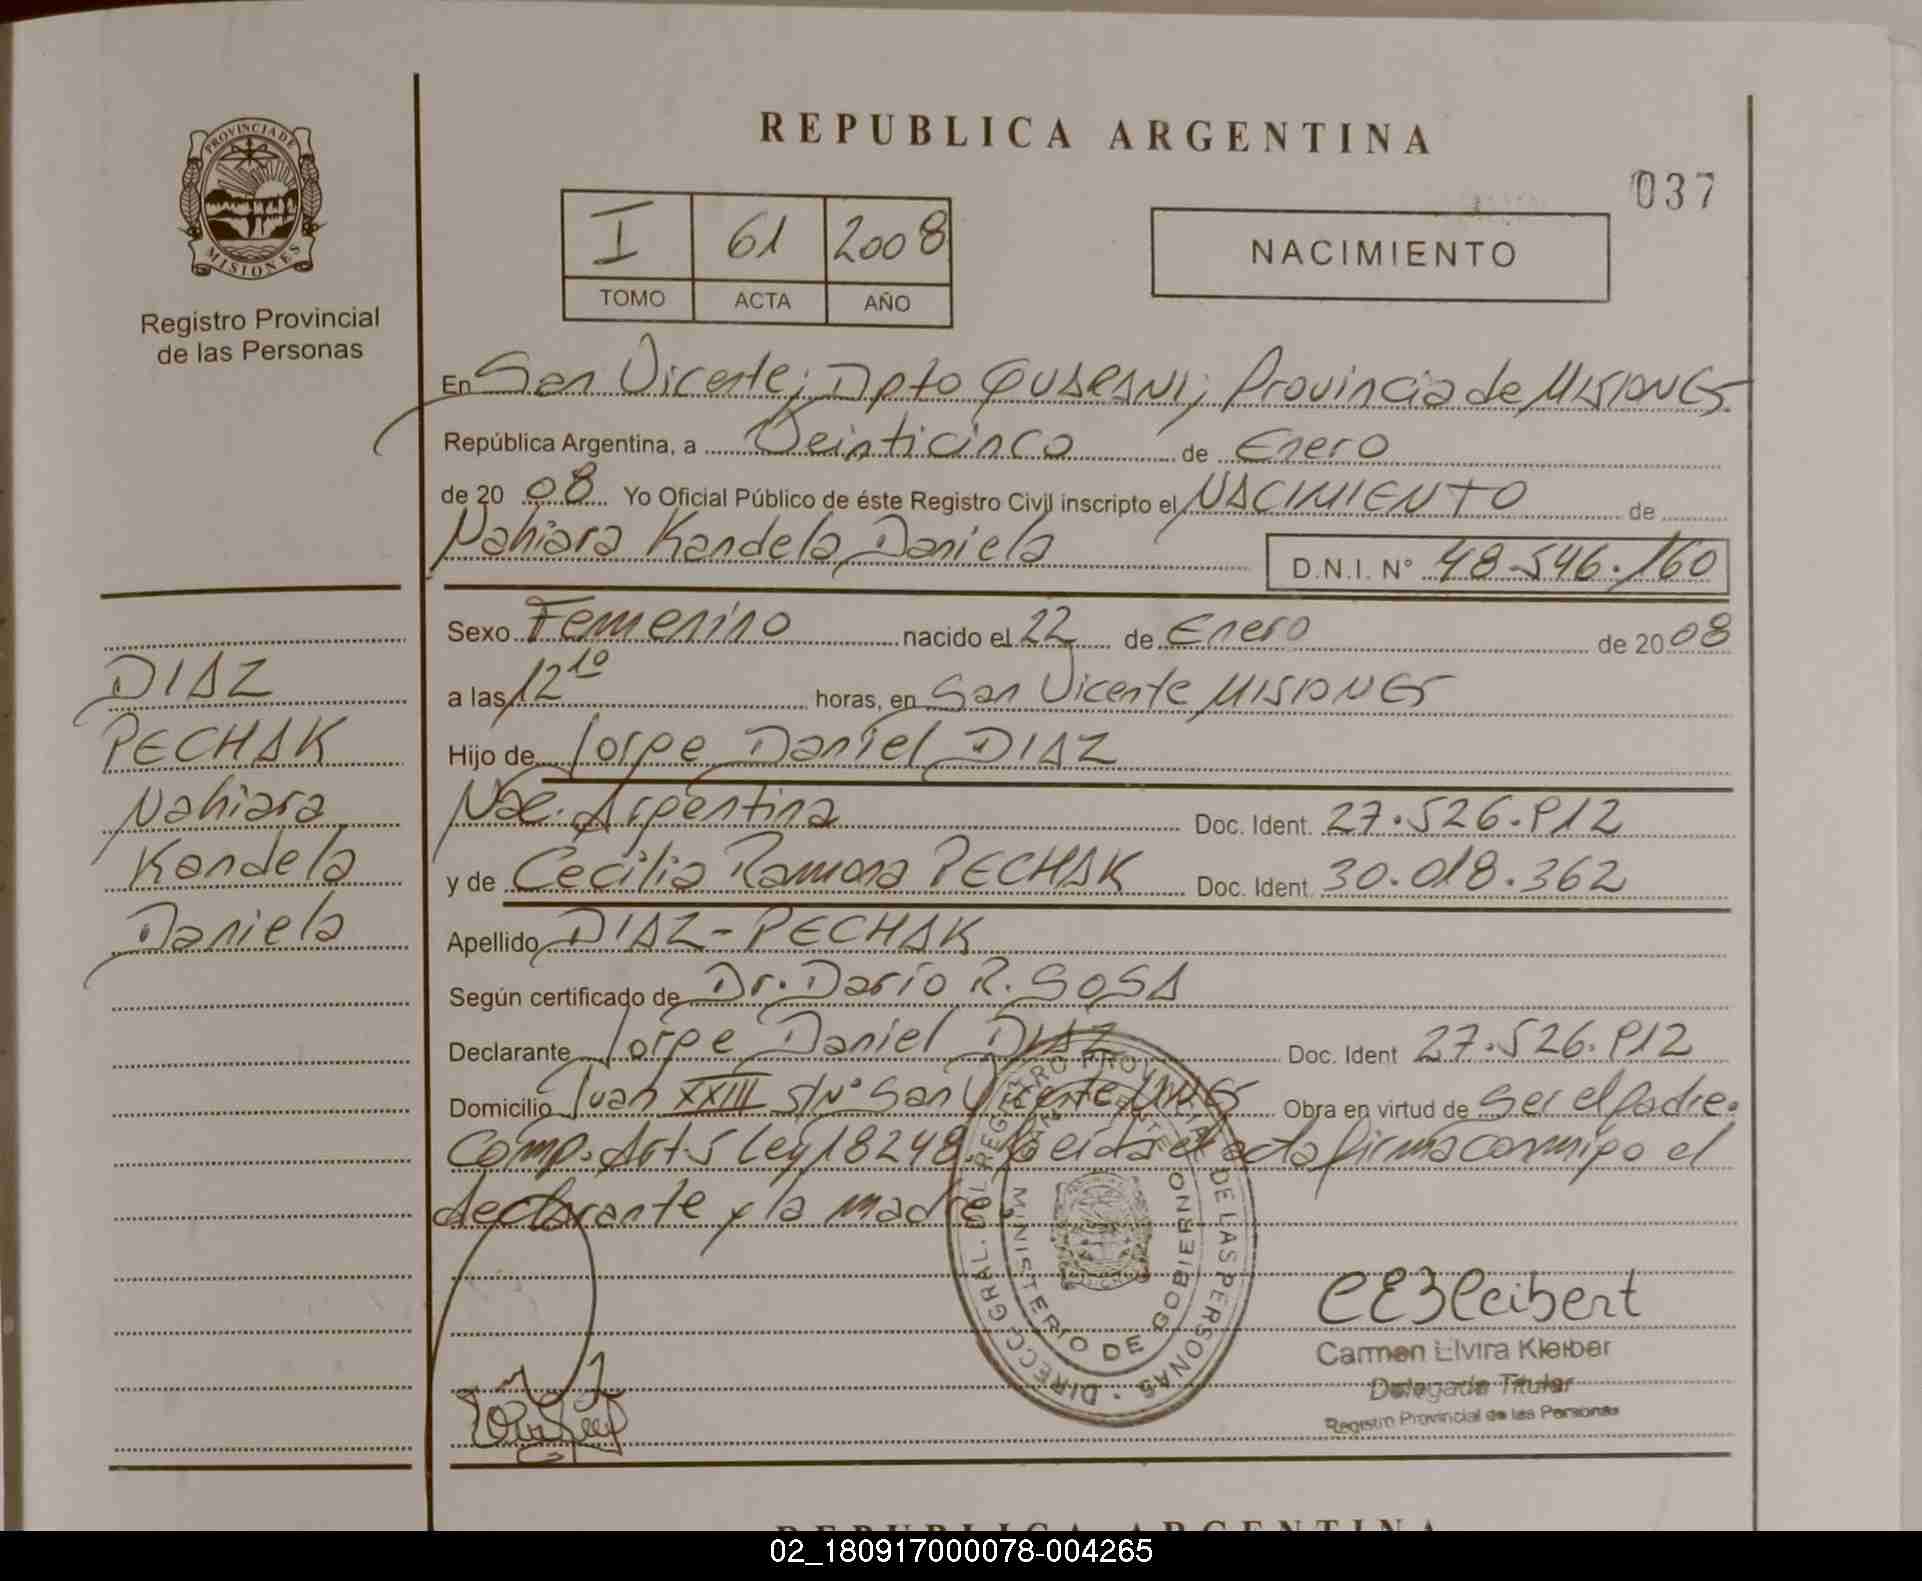 REPUBLICA ARGENTINA
037
PROVINCIA DE
MISIONES
Registro Provincial
de las Personas
I 61 2008
TOMO ACTA AÑO
NACIMIENTO
En San Vicente; Dpto GUARANI; Provincia de MISIONES
República Argentina, a Veinticinco de Enero
de 2008 Yo Oficial Público de éste Registro Civil inscripto el NACIMIENTO de
Nahiara Kandela Daniela D.N.I. N° 48.546.160
Sexo Femenino nacido el 22 de Enero de 2008
a las 12 10 horas, en San Vicente MISIONES
Hijo de Jorge Daniel DIAZ
Nac. Argentina Doc. Ident. 27.526.912
y de Cecilia Ramona PECHAK Doc. Ident. 30.018.362
Apellido DIAZ-PECHAK
Según certificado de Dr. Darío R. SOSA
Declarante Jorge Daniel DIAZ Doc. Ident 27.526.912
Domicilio Juan XXIII S/N° San Vicente, Obra en virtud de Ser el padre.
Comp. Art. 5 Ley 18248. Leída el acta firma conmigo el
declarante y la madre.
DIAZ
PECHAK
Nahiara
Kandela
Daniela
DIRECC. GRAL. DEL REGISTRO PROVINCIAL DE LAS PERSONAS
MINISTERIO DE GOBIERNO
Carmen Elvira Kleiber
Delegada Titular
Registro Provincial de las Personas
REPUBLICA ARGENTINA
02_180917000078-004265